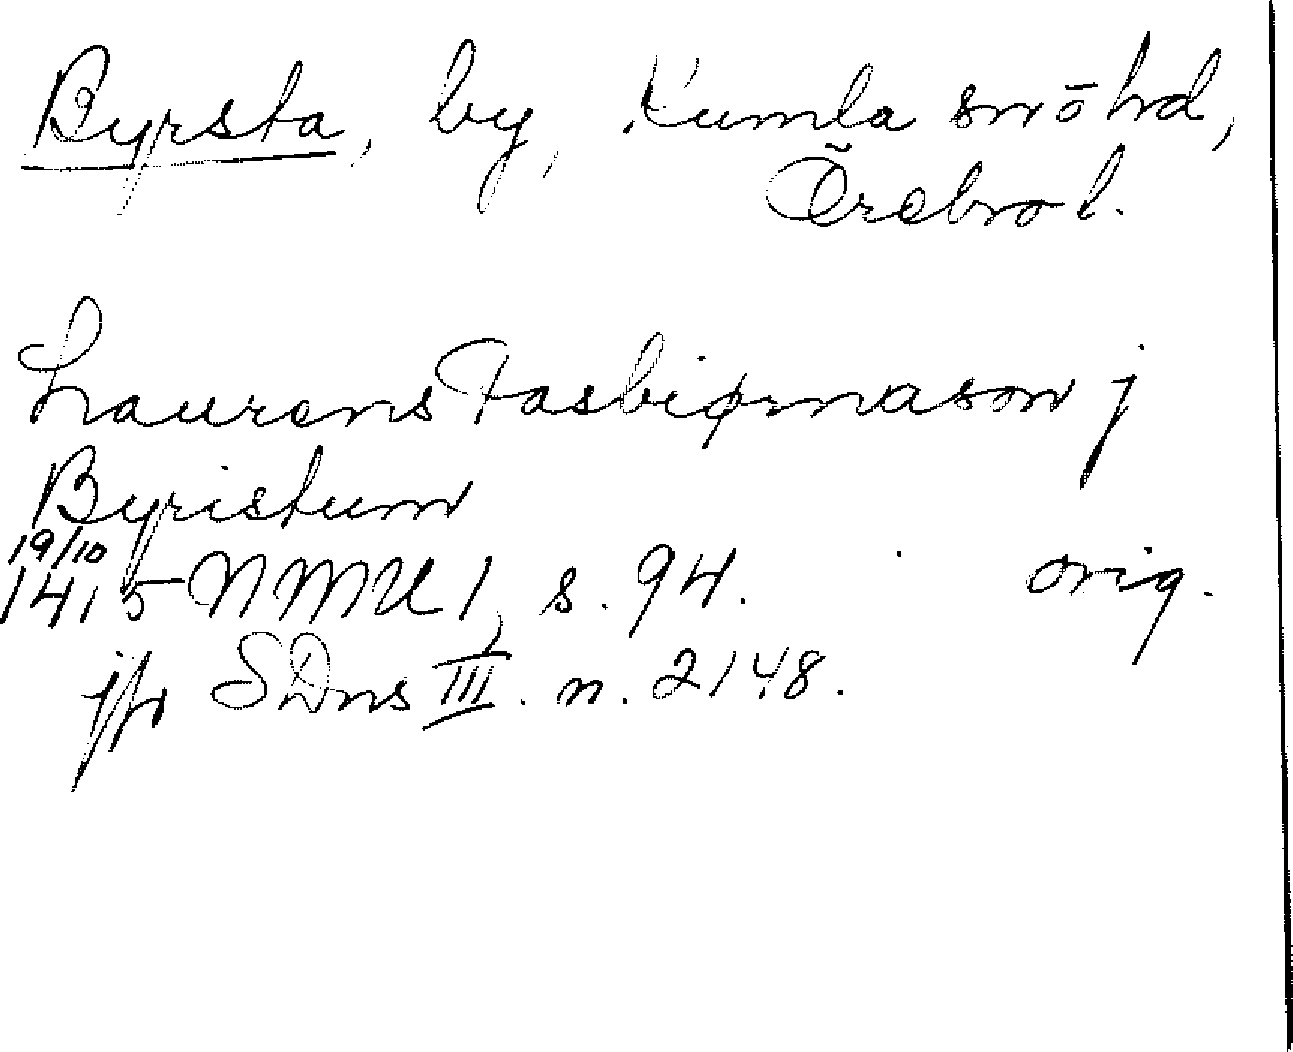 Byrsta, by, Kumla sn o hd,
Örebro l.
Laurens Fasbiørnason j
Byristum
19/10
1415 NMU 1, s. 94. orig.
jfr SDns III. n. 2148.